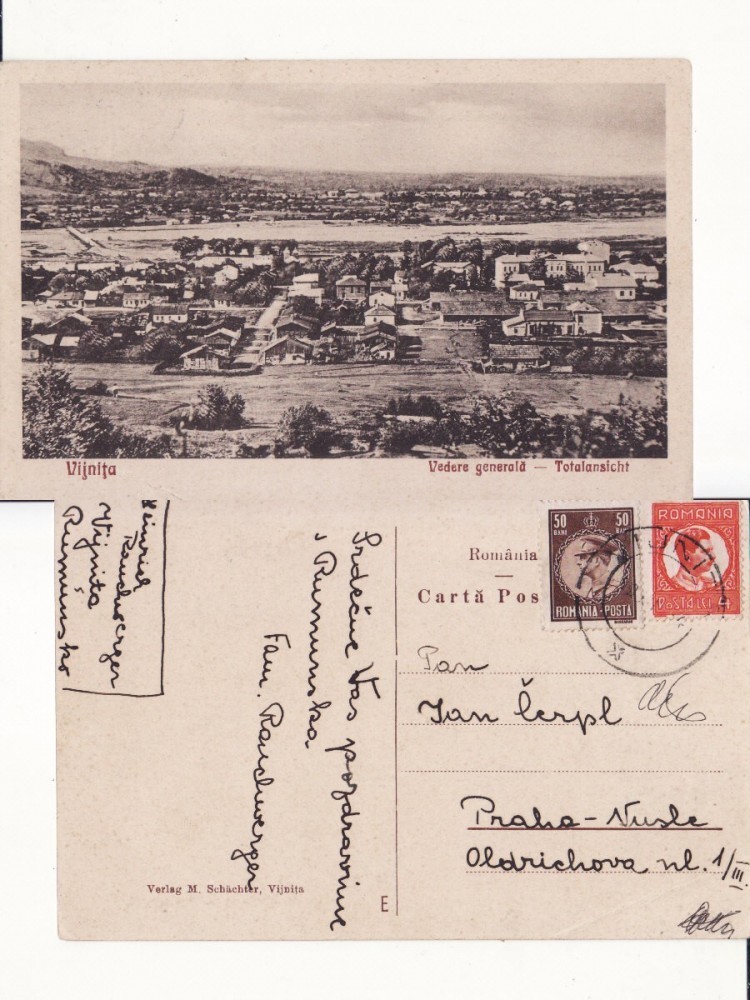 Vijnița
Vedere generală — Totalansicht
Heinrich
Rauchwerger
Vijnița
Rumunsko
Srdečně Vás pozdravujeme
z Rumunska
Fam. Rauchwerger
Verlag M. Schächter, Vijnița
E
România
Cartă Pos
50 50
BANI BANI
ROMANIA-POSTA
ROMANIA
POSTA LEI 4
Pan
Jan Čerpl
Praha-Nusle
Oldrichova ul. 1/III.